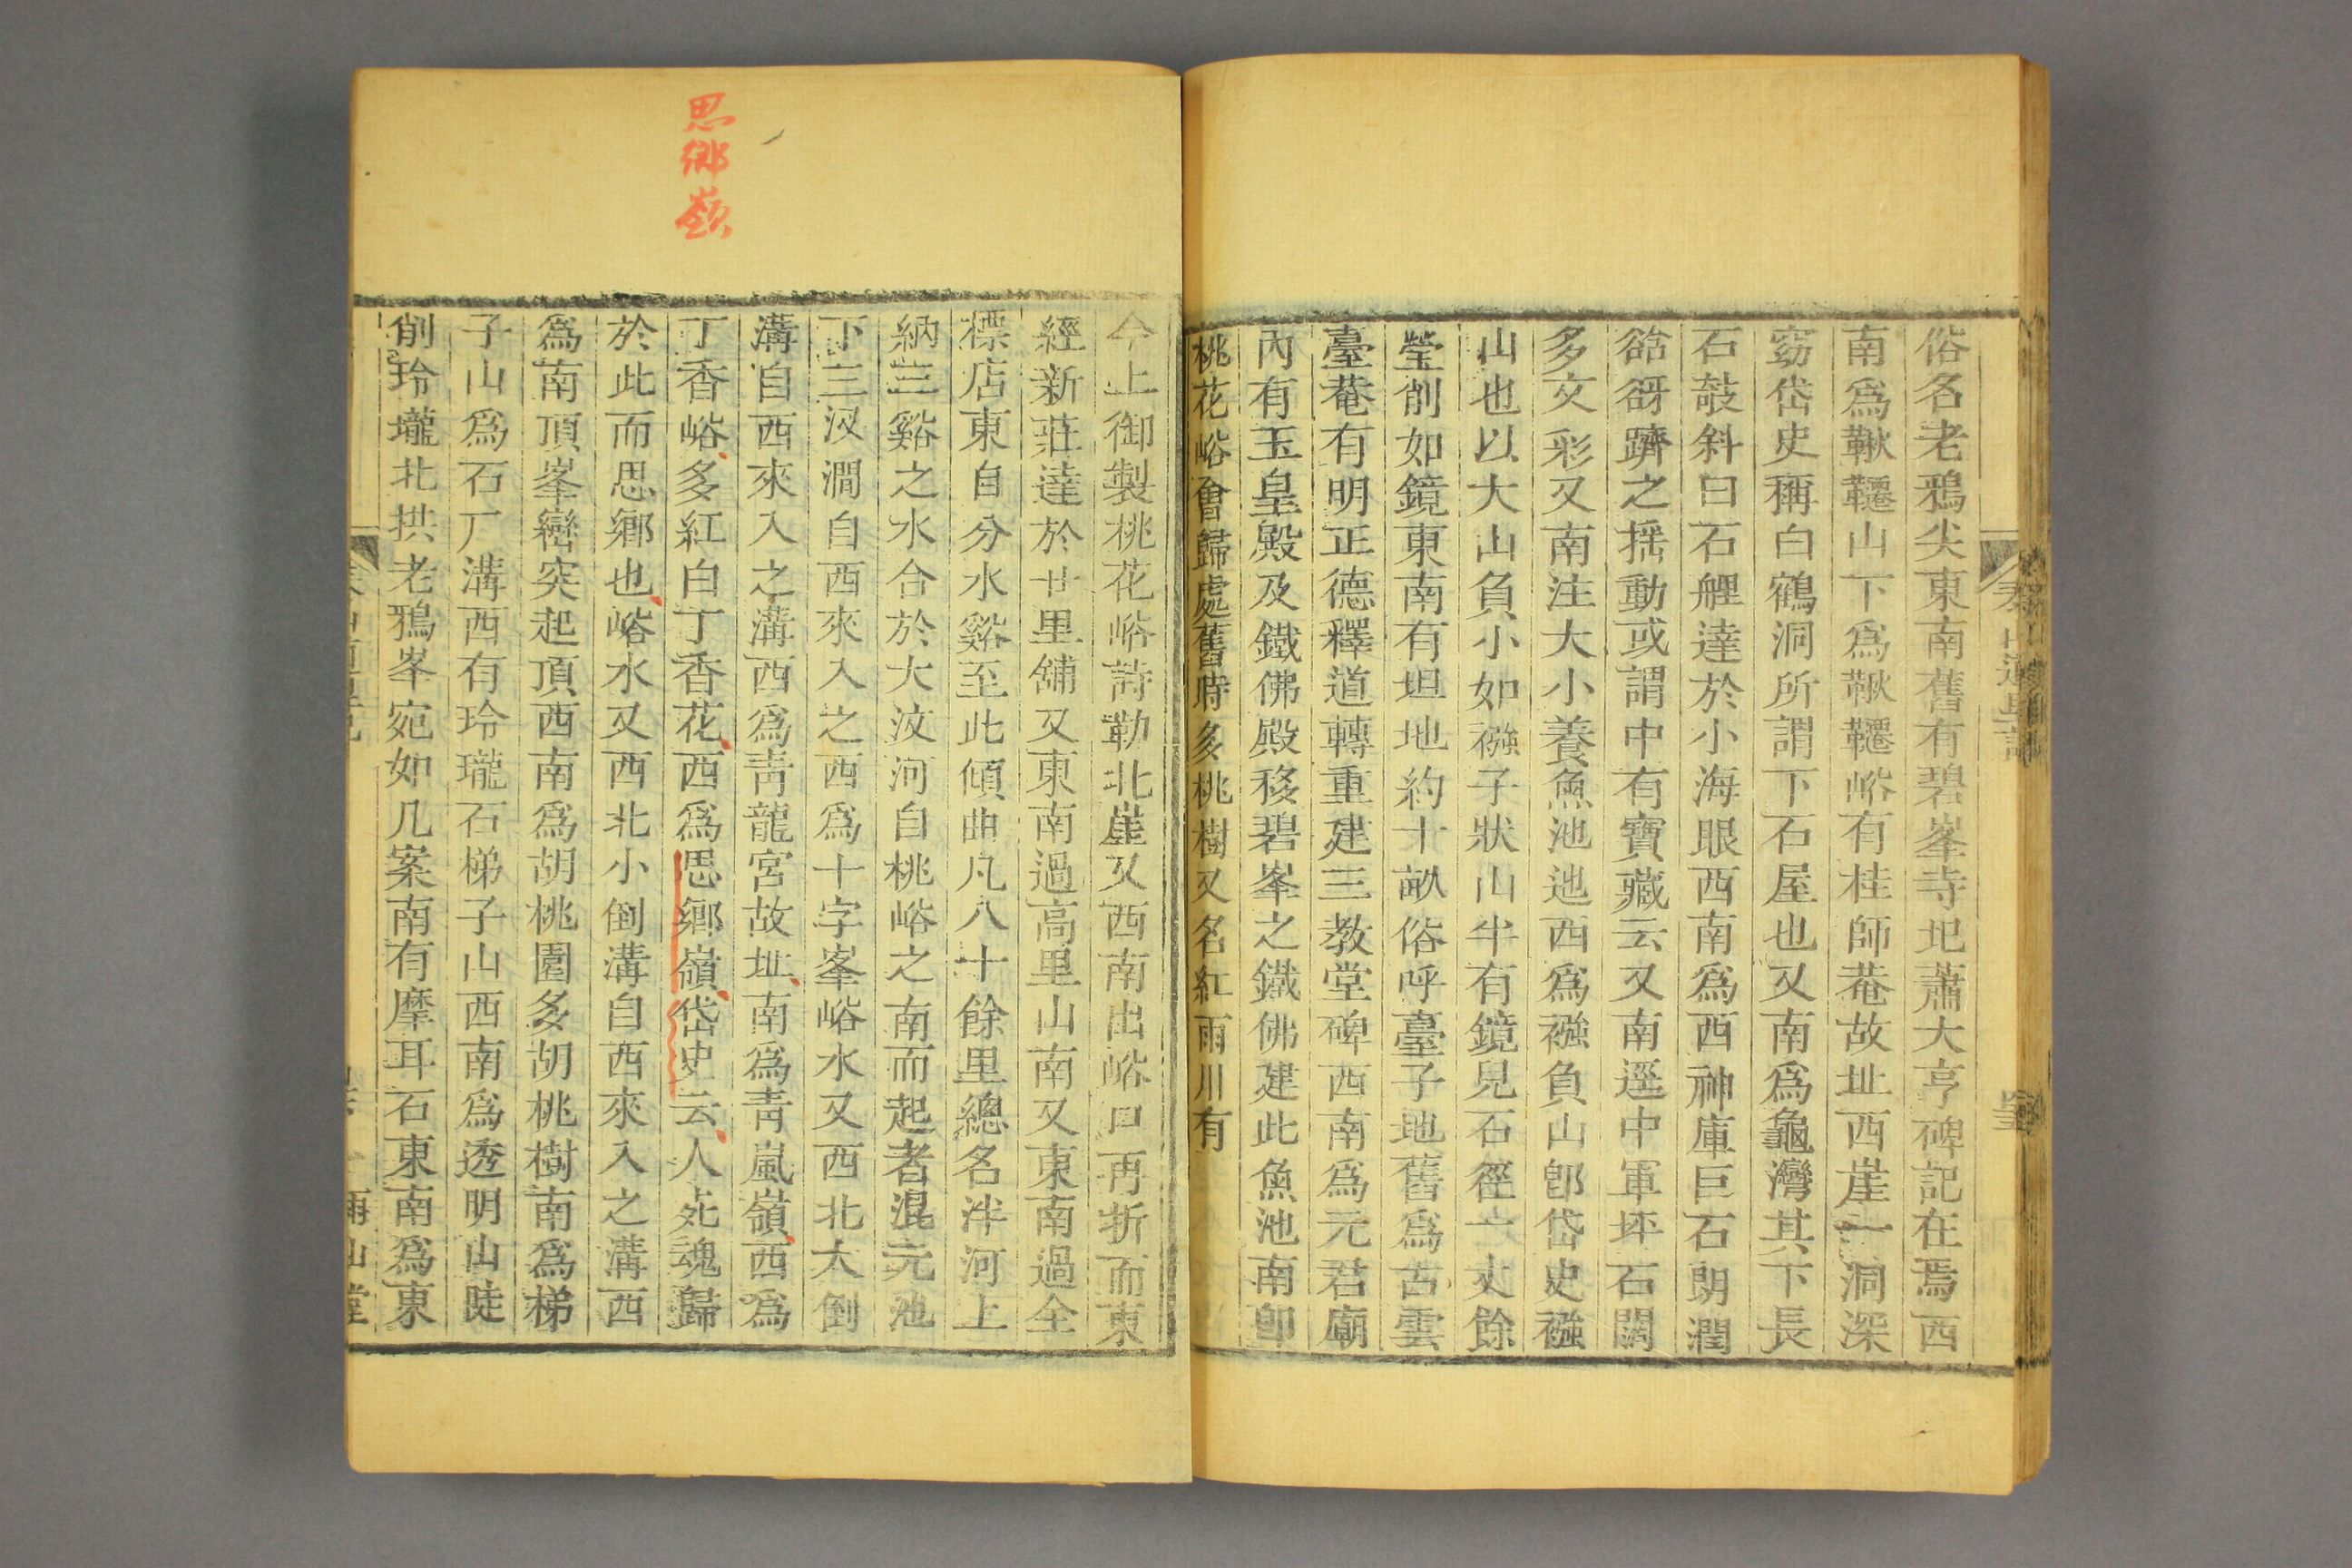 俗名老鴉尖東南舊有碧峯寺圯蕭大亨碑記在焉西
南爲鞦韆山下爲鞦韆峪有桂師菴故址西崖一洞深
窈岱史稱白鶴洞所謂下石屋也又南爲龜灣其下長
石敧斜曰石艃達於小海眼西南爲西神庫巨石朗潤
谽谺躋之揺動或謂中有寶藏云又南逕中軍坪石闊
多文彩又南注大小養魚池池西爲襁負山卽岱史襁
山也以大山負小如襁子狀山半有鏡兒石徑六丈餘
瑩削如鏡東南有坦地約十畝俗呼臺子地舊爲古雲
臺菴有明正德釋道轉重建三教堂碑西南爲元君廟
內有玉皇殿及鐵佛殿移碧峯之鐵佛建此魚池南卽
桃花峪會歸處舊時多桃樹又名紅雨川有
泰山道里記
今上御製桃花峪詩勒北崖又西南出峪口再折而東
經新莊達於廿里舖又東南過高里山南又東南過全
標店東自分水谿至此傾曲凡八十餘里總名泮河上
納三谿之水合於大汶河自桃峪之南而起者混元池
下三汊澗自西來入之西爲十字峯峪水又西北大倒
溝自西來入之溝西爲靑龍宮故址南爲靑嵐嶺西爲
丁香峪多紅白丁香花西爲思鄉嶺岱史云人死魂歸
於此而思鄉也峪水又西北小倒溝自西來入之溝西
爲南頂峯巒突起頂西南爲胡桃園多胡桃樹南爲梯
子山爲石厂溝西有玲瓏石梯子山西南爲透明山陡
削玲瓏北拱老鴉峯宛如几案南有摩耳石東南爲東
思鄉嶺
雨山堂